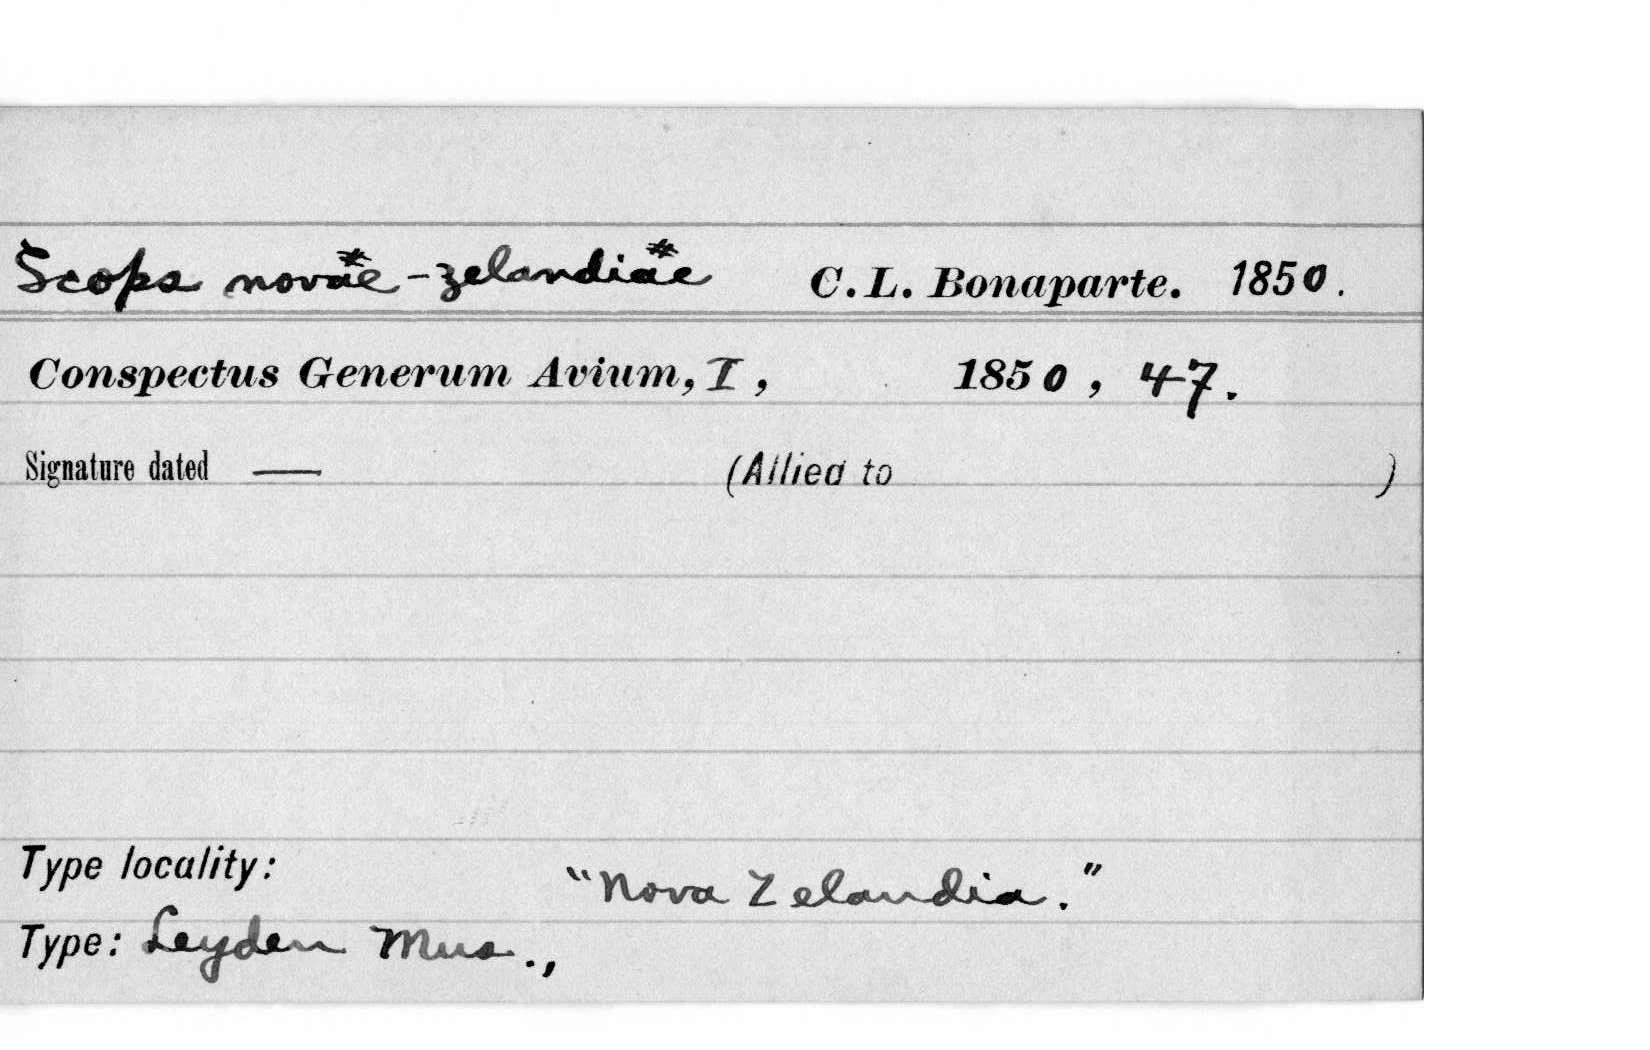 Scops novae-zelandiae C. L. Bonaparte. 1850.
Conspectus Generum Avium, I, 1850, 47.
Signature dated — (Allied to )
Type locality: "Nova Zelandia."
Type: Leyden Mus.,